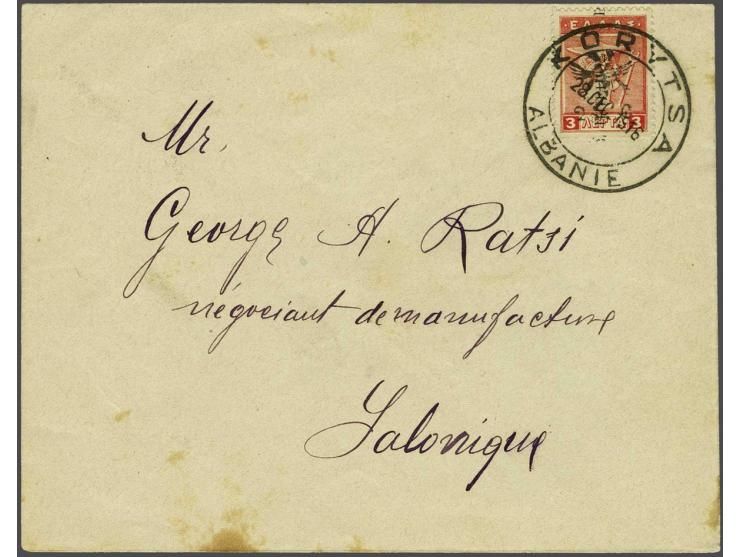 ΕΛΛΑΣ
KORYTSA
28.DEC.1916
ALBANIE
3 ΛΕΠΤΑ 3
Mr.
George A. Ratsi
négociant de manufacture
Salonique